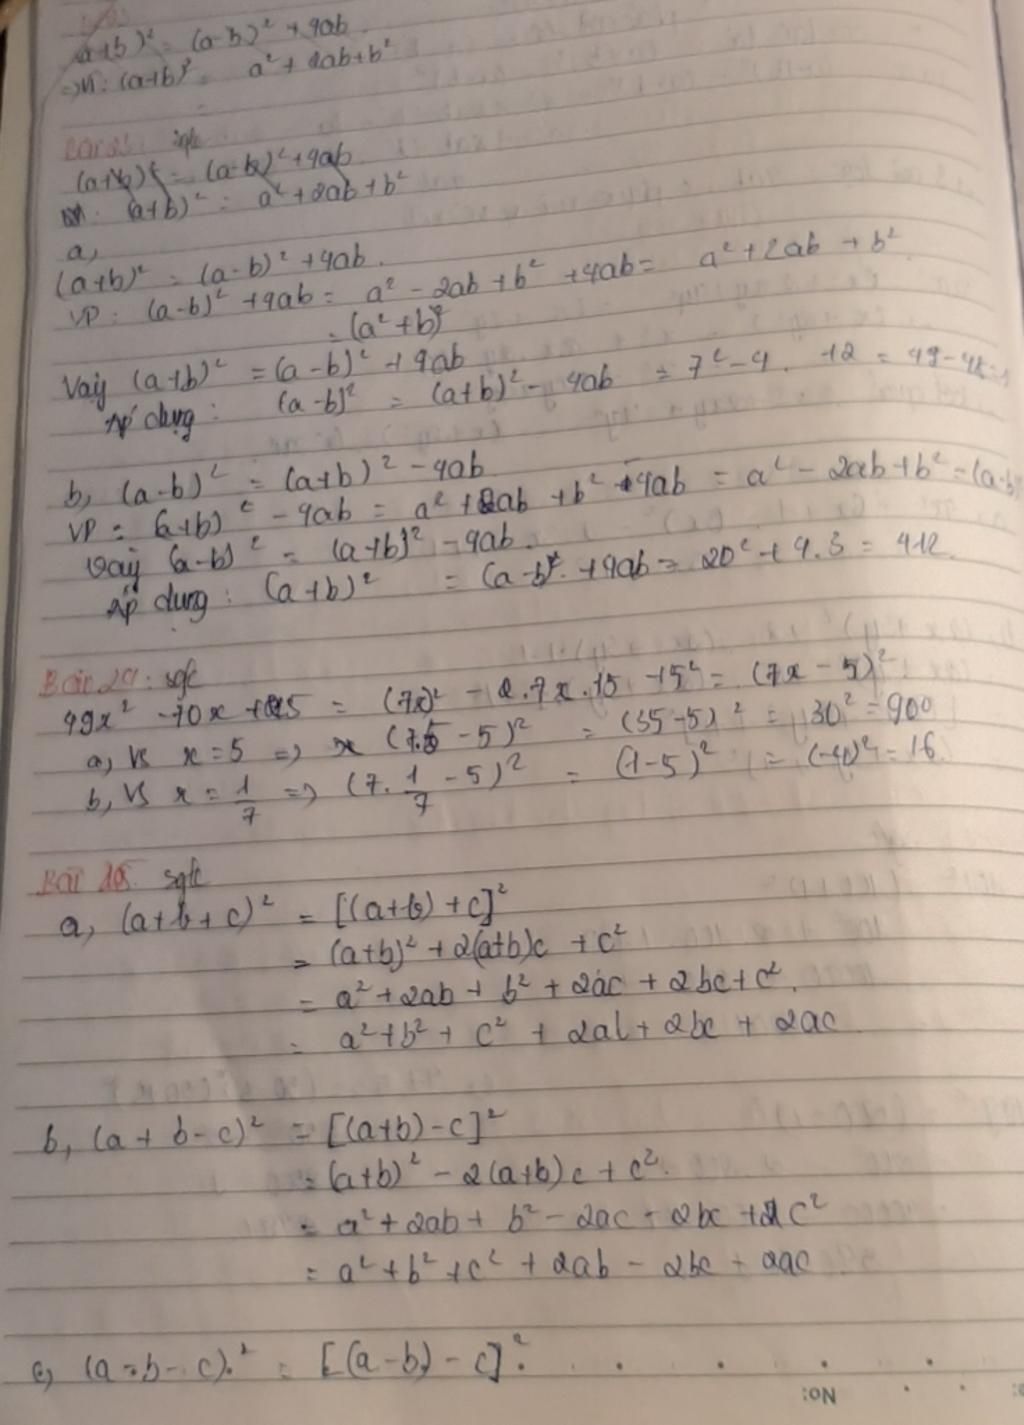 (a+b)² = (a-b)² + 4ab
=> VT: (a+b)² = a² + 2ab + b²
Bài 23: sgk
(a+b)² = (a-b)² + 4ab
VT: (a+b)² = a² + 2ab + b²
a,
(a+b)² = (a-b)² + 4ab.
VP: (a-b)² + 4ab = a² - 2ab + b² + 4ab = a² + 2ab + b²
= (a² + b)²
Vậy (a+b)² = (a-b)² + 4ab
Áp dụng: (a-b)² = (a+b)² - 4ab = 7² - 4. 12 = 49 - 48 = 1
b, (a-b)² = (a+b)² - 4ab
VP = (a+b)² - 4ab = a² + 2ab + b² - 4ab = a² - 2ab + b² = (a-b)²
Vậy (a-b)² = (a+b)² - 4ab.
Áp dụng: (a+b)² = (a-b)² + 4ab = 20² + 4.3 = 412.
Bài 24: sgk
49x² - 70x + 25 = (7x)² - 2.7x.5 + 5² = (7x - 5)²
a, Vs x = 5 => (7.5 - 5)² = (35 - 5)² = 30² = 900
b, Vs x = 1/7 => (7. 1/7 - 5)² = (1-5)² = (-4)² = 16
Bài 25 sgk
a, (a+b+c)² = [(a+b) + c]²
= (a+b)² + 2(a+b)c + c²
= a² + 2ab + b² + 2ac + 2bc + c².
= a² + b² + c² + 2ab + 2bc + 2ac
b, (a + b - c)² = [(a+b) - c]²
= (a+b)² - 2(a+b)c + c².
= a² + 2ab + b² - 2ac - 2bc + c²
= a² + b² + c² + 2ab - 2bc - 2ac
c, (a - b - c)² = [(a - b) - c]²
No: